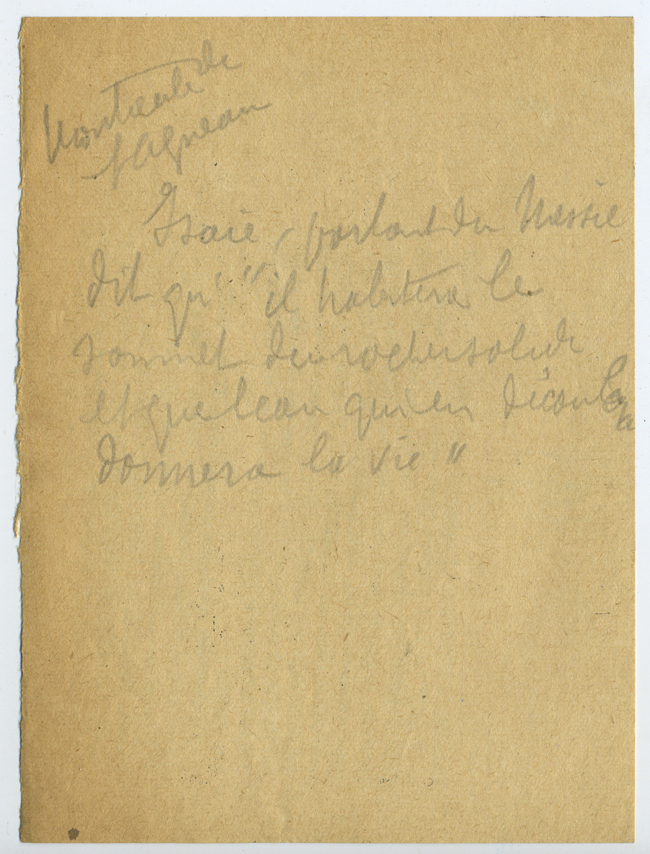 Monticule de
l'Agneau
Isaïe, parlant du Messie
dit qu' "il habitera le
sommet du rocher solide
et que l'eau qui en découlera
donnera la vie"